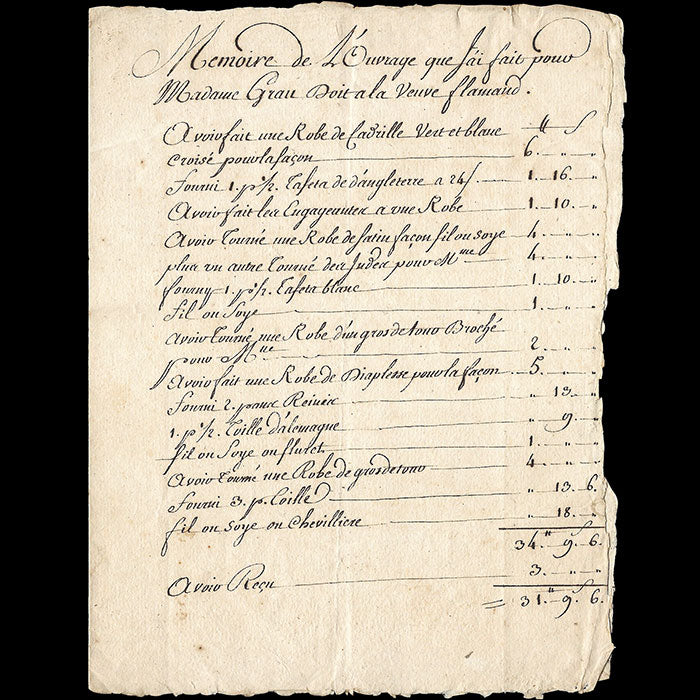 Memoire de L'Ouvrage que J'ai fait pour
Madame Grau Doit a la Veuve flamand.
Avoir fait une Robe de Cadrille Vert et blanc " ʃ
croisé pour la façon 6. " "
Fourni 1. p. ½. Tafeta de d'angleterre a 24ʃ. 1. 16. "
Avoir fait les Engageantes a une Robe 1. 10. "
Avoir Tourné une Robe de satin façon fil ou soye 4. " "
plus un autre Tourné des Indes pour M.me 4. " "
fourny 1. p. ½. Tafeta blanc 1. 10. "
Fil ou Soye 1. " "
Avoir Tourné une Robe d'un gros de tour Broché
pour M.me 2. " "
Avoir fait une Robe de Diaplesse pour la façon 5. " "
Fourni 2. pour " 13. "
1. p. ½. Toille d'alemagne " 9. "
fil ou Soye ou fluret 1. " "
Avoir Tourné une Robe de gros de tour 4. " "
Fourni 3. p. Toille " 13. 6.
fil ou soye ou Chevilliere " 18. "
34." 9.ʃ 6.
Avoir Reçu 3. " "
= 31." 9.ʃ 6.